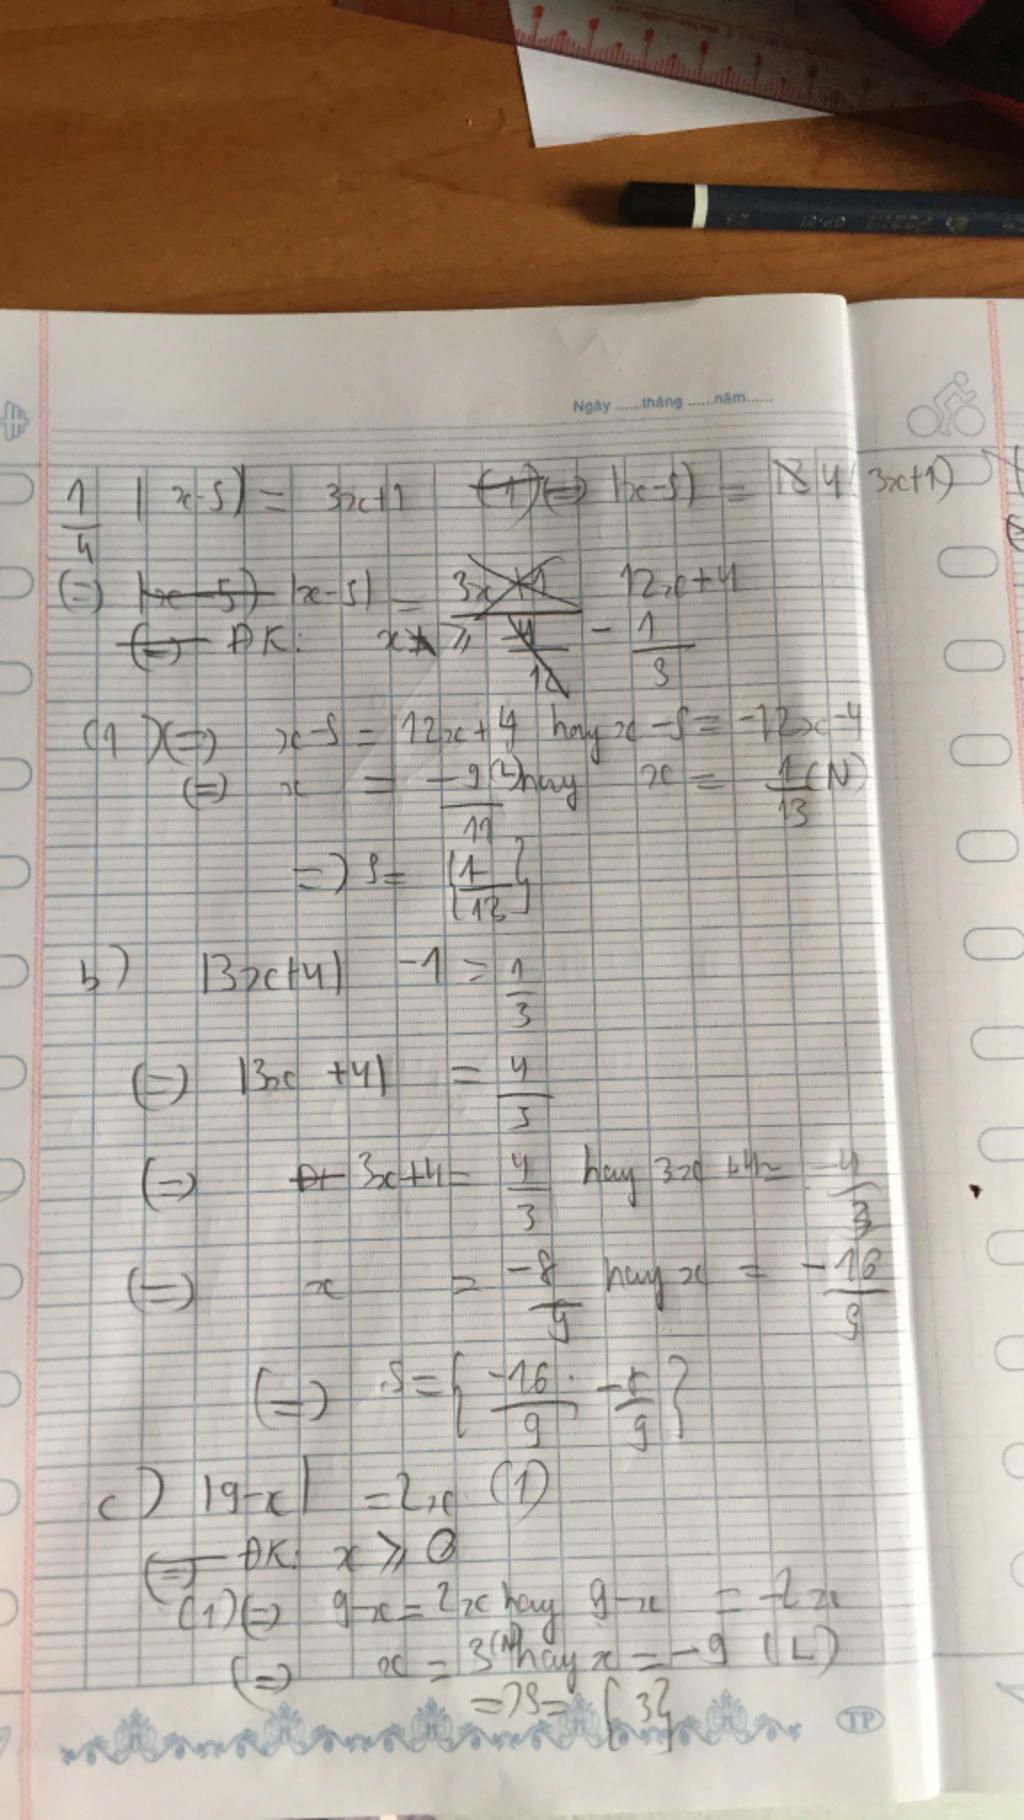 Ngày ......tháng ......năm......
1/4 |x-5| = 3x+1 (1) (=) |x-5| = 4(3x+1)
(=) |x-5| |x-5| = 3x+1 12x+4
(=) ĐK: x ≥ 4/12 - 1/3
(1)(=) x-5 = 12x+4 hay x-5 = -12x-4
(=) x = -9/11 (L) hay x = 1/13 (N)
=) S = {1/13}
b) |3x+4| -1 = 1/3
(=) |3x +4| = 4/3
(=) 3x+4 = 4/3 hay 3x+4 = -4/3
(=) x = -8/9 hay x = -16/9
(=) S = {-16/9; -8/9}
c) |9-x| = 2x (1)
(=) ĐK: x ≥ 0
(1)(=) 9-x = 2x hay 9-x = -2x
(=) x = 3 (N) hay x = -9 (L)
=) S = {3}
TP